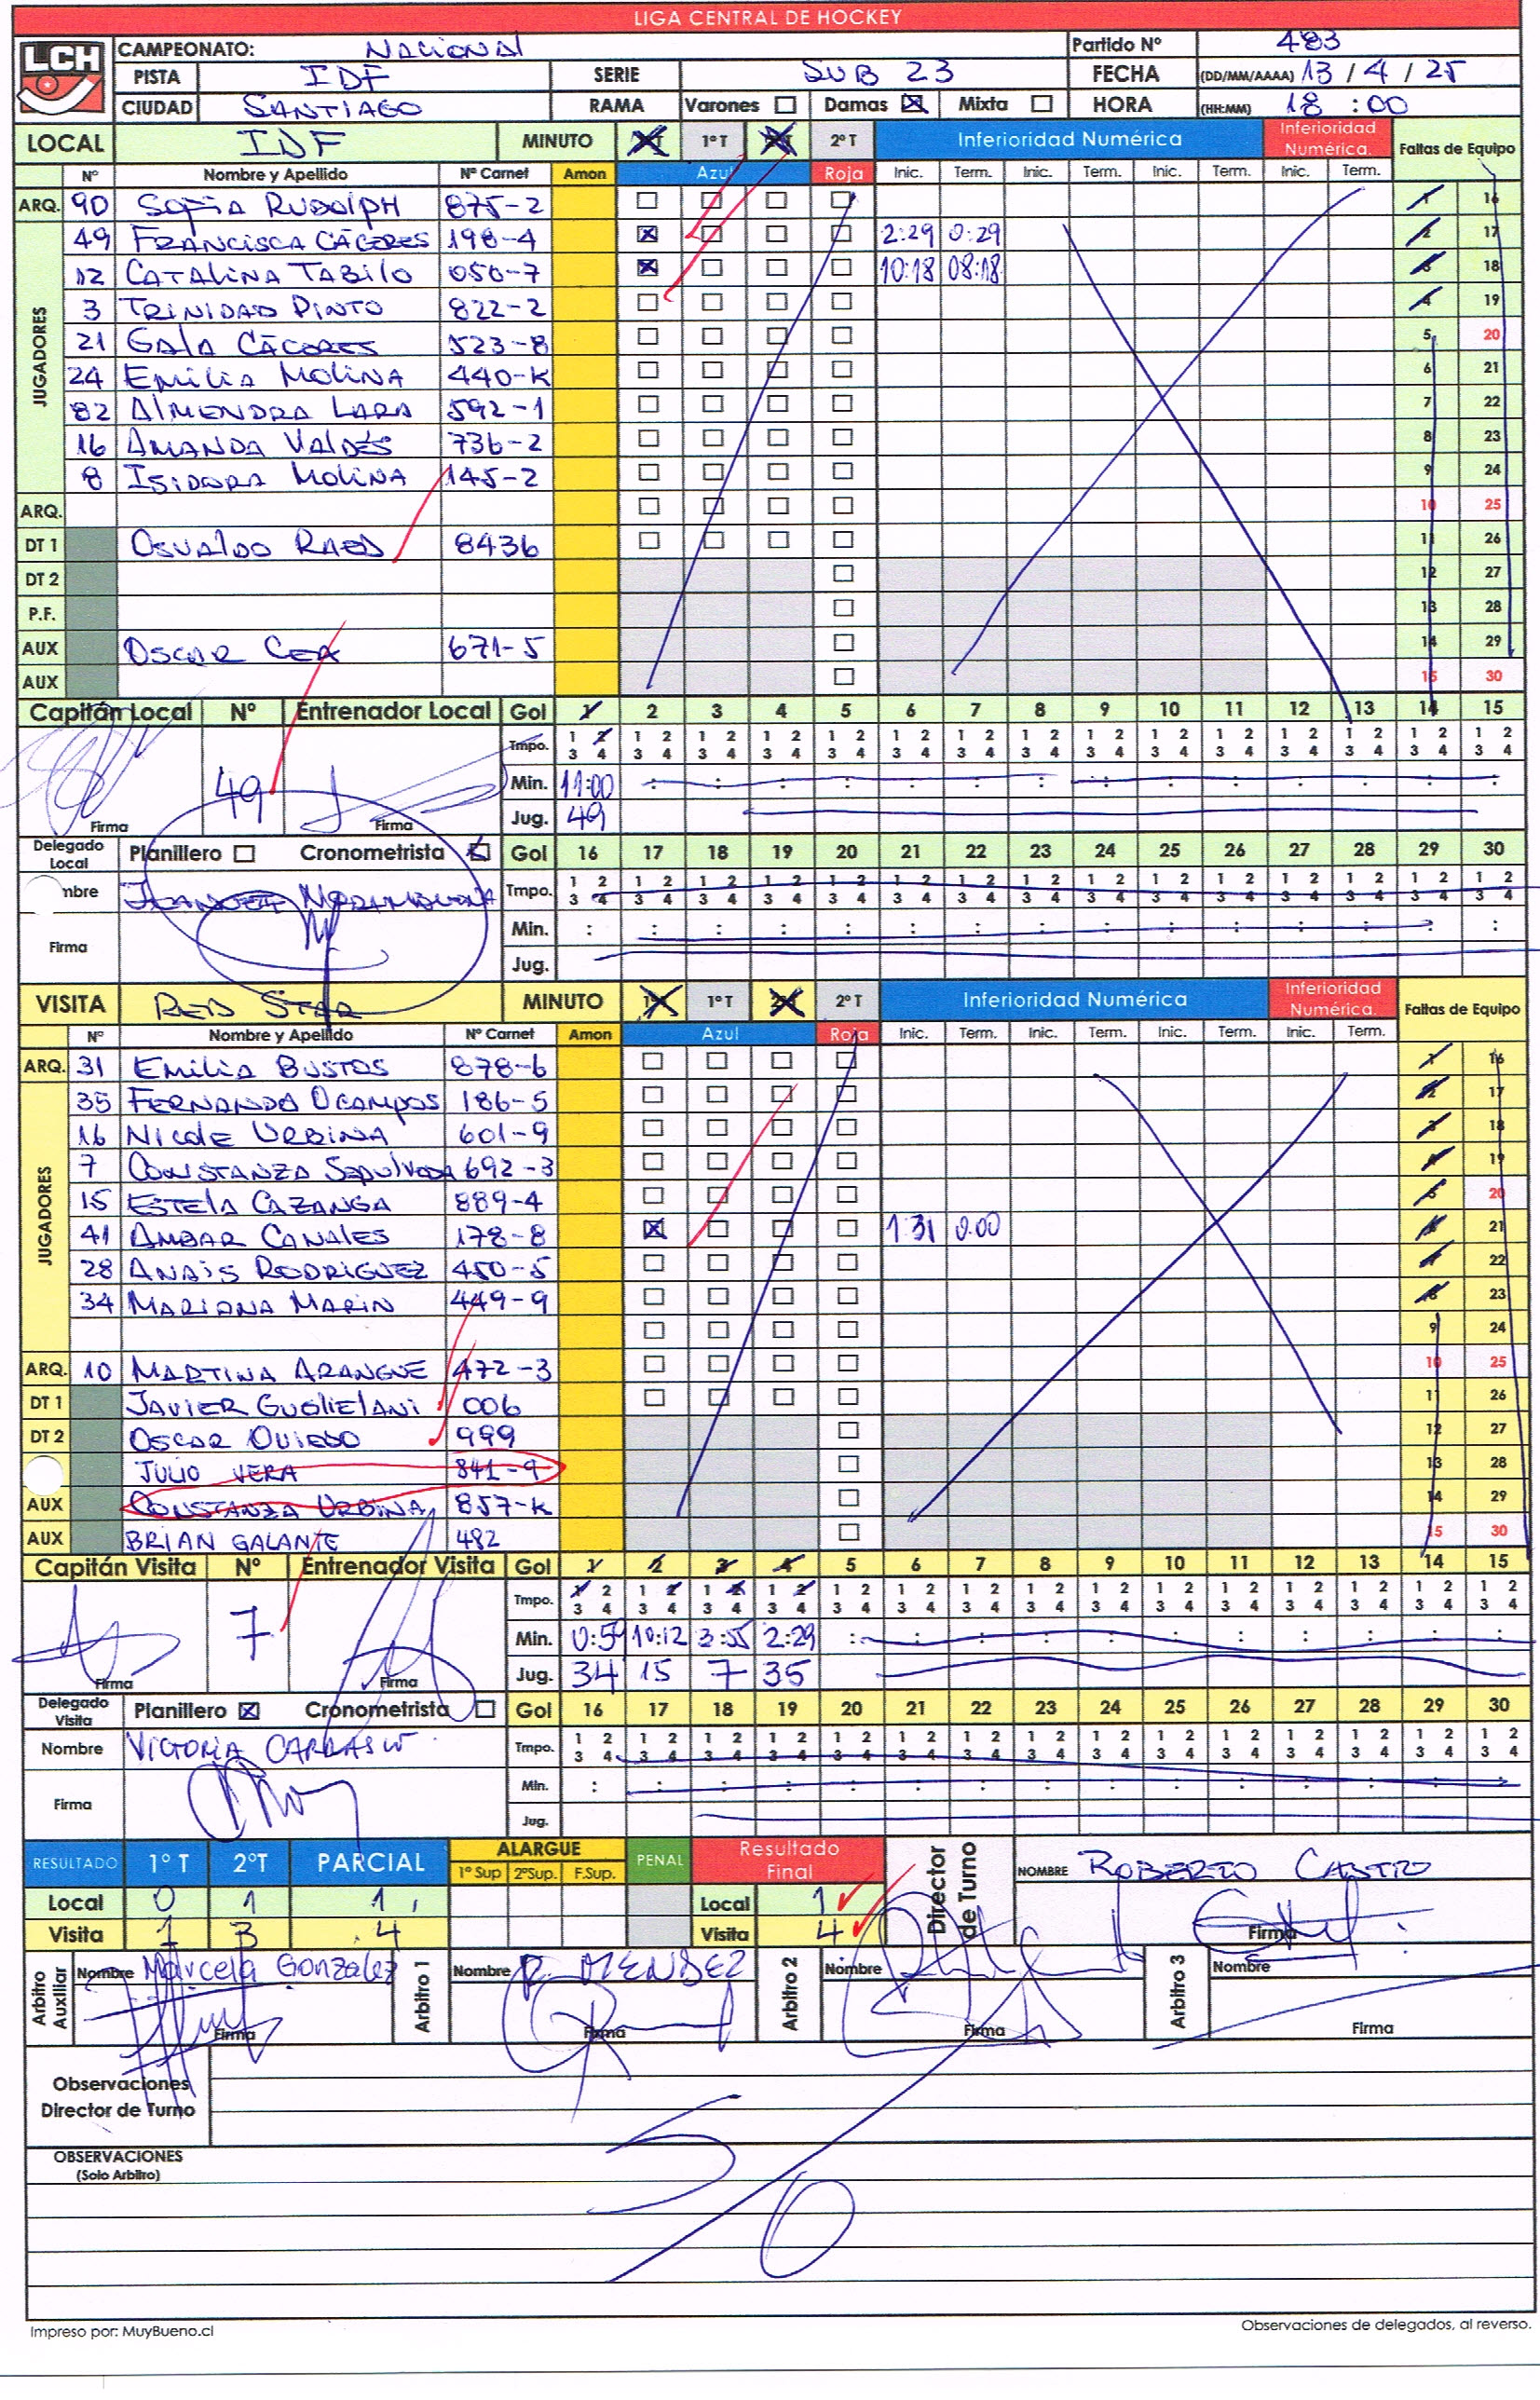 LIGA CENTRAL DE HOCKEY
LCH CAMPEONATO: NACIONAL Partido Nº 483
PISTA IDF SERIE SUB 23 FECHA (DD/MM/AAAA) 13 / 4 / 25
CIUDAD SANTIAGO RAMA Varones Damas Mixta HORA (HH:MM) 18 : 00
LOCAL IDF MINUTO 1º T 2º T Inferioridad Numérica Inferioridad Numérica. Faltas de Equipo
Nº Nombre y Apellido Nº Carnet Amon Azul Roja Inic. Term. Inic. Term. Inic. Term. Inic. Term.
ARQ. 90 SOFIA RUDOLPH 875-2 1 16
JUGADORES
49 FRANCISCA CÁCERES 198-4 2:29 0:29 2 17
12 CATALINA TABILO 050-7 10:18 08:18 3 18
3 TRINIDAD PINTO 822-2 4 19
21 GALA CÁCERES 523-8 5 20
24 EMILIA MOLINA 440-K 6 21
82 ALMENDRA LARA 592-1 7 22
16 AMANDA VALDÉS 736-2 8 23
8 ISIDORA MOLINA 145-2 9 24
ARQ. 10 25
DT 1 OSVALDO RAED 8436 11 26
DT 2 12 27
P.F. 13 28
AUX OSCAR CEA 671-5 14 29
AUX 15 30
Capitán Local Nº Entrenador Local Gol 1 2 3 4 5 6 7 8 9 10 11 12 13 14 15
Tmpo. 1 2 3 4 1 2 3 4 1 2 3 4 1 2 3 4 1 2 3 4 1 2 3 4 1 2 3 4 1 2 3 4 1 2 3 4 1 2 3 4 1 2 3 4 1 2 3 4 1 2 3 4 1 2 3 4 1 2 3 4
49 Min. 11:00
Firma Firma Jug. 49
Delegado Local Planillero Cronometrista Gol 16 17 18 19 20 21 22 23 24 25 26 27 28 29 30
mbre Tmpo. 1 2 3 4 1 2 3 4 1 2 3 4 1 2 3 4 1 2 3 4 1 2 3 4 1 2 3 4 1 2 3 4 1 2 3 4 1 2 3 4 1 2 3 4 1 2 3 4 1 2 3 4 1 2 3 4 1 2 3 4
Firma Min.
Jug.
VISITA RED STAR MINUTO 1º T 2º T Inferioridad Numérica Inferioridad Numérica. Faltas de Equipo
Nº Nombre y Apellido Nº Carnet Amon Azul Roja Inic. Term. Inic. Term. Inic. Term. Inic. Term.
ARQ. 31 EMILIA BUSTOS 878-6 1 16
JUGADORES
35 FERNANDA OCAMPOS 186-5 2 17
16 NICOLE URBINA 601-9 3 18
7 CONSTANZA SEPULVEDA 692-3 4 19
15 ESTELA CAZANGA 889-4 5 20
41 AMBAR CANALES 178-8 1:31 0:00 6 21
28 ANAIS RODRIGUEZ 450-5 7 22
34 MARIANA MARIN 449-9 8 23
9 24
ARQ. 10 MARTINA ARANGUE 472-3 10 25
DT 1 JAVIER GUGLIELANI 006 11 26
DT 2 OSCAR OVIEDO 999 12 27
JULIO VERA 841-9 13 28
AUX CONSTANZA URBINA 857-K 14 29
AUX BRIAN GALANTE 482 15 30
Capitán Visita Nº Entrenador Visita Gol 1 2 3 4 5 6 7 8 9 10 11 12 13 14 15
Tmpo. 1 2 3 4 1 2 3 4 1 2 3 4 1 2 3 4 1 2 3 4 1 2 3 4 1 2 3 4 1 2 3 4 1 2 3 4 1 2 3 4 1 2 3 4 1 2 3 4 1 2 3 4 1 2 3 4 1 2 3 4
7 Min. 0:59 10:12 3:55 2:29
Firma Firma Jug. 34 15 7 35
Delegado Visita Planillero Cronometrista Gol 16 17 18 19 20 21 22 23 24 25 26 27 28 29 30
Nombre VICTORIA CARRASCO Tmpo. 1 2 3 4 1 2 3 4 1 2 3 4 1 2 3 4 1 2 3 4 1 2 3 4 1 2 3 4 1 2 3 4 1 2 3 4 1 2 3 4 1 2 3 4 1 2 3 4 1 2 3 4 1 2 3 4 1 2 3 4
Firma Min.
Jug.
RESULTADO 1º T 2ºT PARCIAL ALARGUE 1º Sup 2ºSup. F.Sup. PENAL Resultado Final Director de Turno NOMBRE ROBERTO CASTRO
Local 0 1 1 Local 1
Visita 1 3 4 Visita 4 Firma
Arbitro Auxiliar Nombre Marcela Gonzalez Firma Arbitro 1 Nombre R. MENDEZ Firma Arbitro 2 Nombre Firma Arbitro 3 Nombre Firma
Observaciones Director de Turno
OBSERVACIONES
(Solo Arbitro)
S/O
Impreso por: MuyBueno.cl Observaciones de delegados, al reverso.